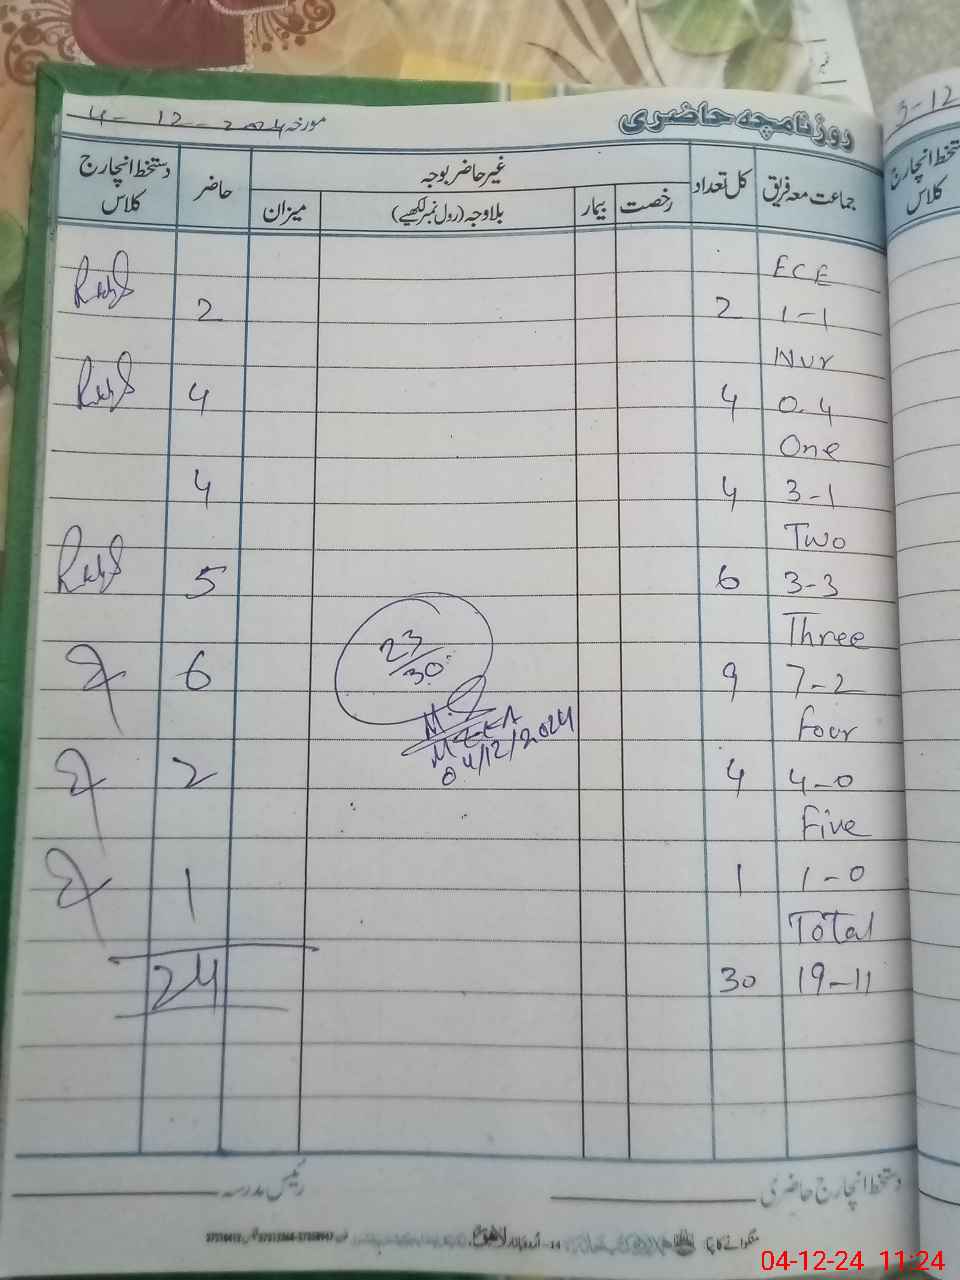 روزنامچہ حاضری
مورخہ 4-12-2024
جماعت معہ فریق کل تعداد غیر حاضر بوجہ حاضر دستخط انچارج کلاس
رخصت بیمار بلاوجہ (رول نمبر لکھیے) میزان
ECE
1-1 2 2
Nur
0-4 4 4
One
3-1 4 4
Two
3-3 6 5
Three
7-2 9 6
Four
4-0 4 2
Five
1-0 1 1
Total
19-11 30 24
23/30
04/12/2024
دستخط انچارج حاضری
رئیس مدرسہ
3-12
دستخط انچارج
کلاس
04-12-24 11:24